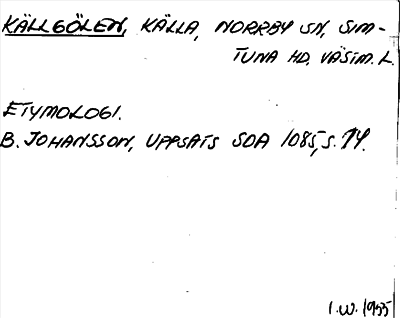 KÄLLGÖLEN, KÄLLA, NORRBY SN, SIM-
TUNA HD, VÄSTM. L.
ETYMOLOGI.
B. JOHANSSON, UPPSATS SOA 1085, S. 14.
I.W. 1955